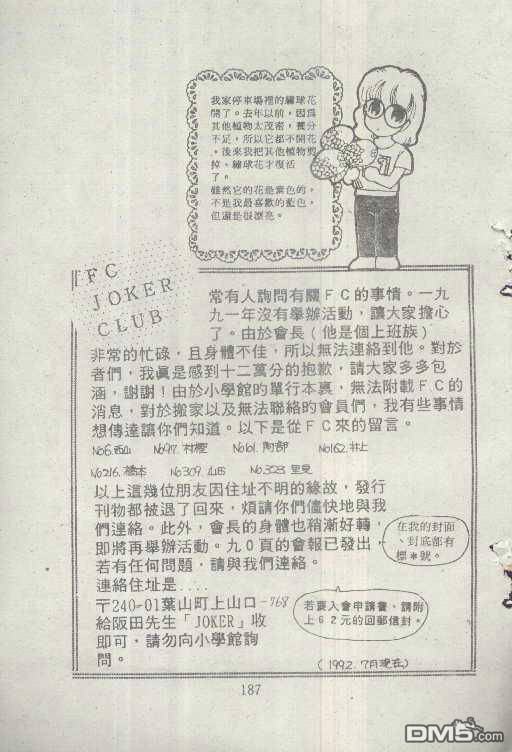 我家停車場裡的繡球花
開了。去年以前，因為
其他植物太茂密，養分
不足，所以它都不開花
，後來我把其他植物剪
掉、繡球花才復活
了。
雖然它的花是紫色的，
不是我最喜歡的藍色，
但還是很漂亮。
FC
JOKER
CLUB
常有人詢問有關ＦＣ的事情。一九
九一年沒有舉辦活動，讓大家擔心
了。由於會長（他是個上班族）
非常的忙碌，且身體不佳，所以無法連絡到他。對於
者們，我眞是感到十二萬分的抱歉，請大家多多包
涵，謝謝！由於小學館旳單行本裏，無法附載ＦＣ的
消息，對於搬家以及無法聯絡旳會員們，我有些事情
想傳達讓你們知道。以下是從ＦＣ來的留言。
No6.西山 No97.村樫 No161.阿部 No162.井上
No216.橋本 No309.山口 No.323 里見
以上這幾位朋友因住址不明的緣故，發行
刊物都被退了回來，煩請你們儘快地與我
們連絡。此外，會長的身體也稍漸好轉，
即將再舉辦活動。九０頁的會報已發出，
若有任何問題，請與我們連絡。
在我的封面
、封底都有
標＊號。
連絡住址是....
〒240-01葉山町上山口-768
給阪田先生「JOKER」收
即可，請勿向小學館詢
問。
若要入會申請書，請附
上６２元的回郵信封。
(1992.7月現在)
187
DM5.com